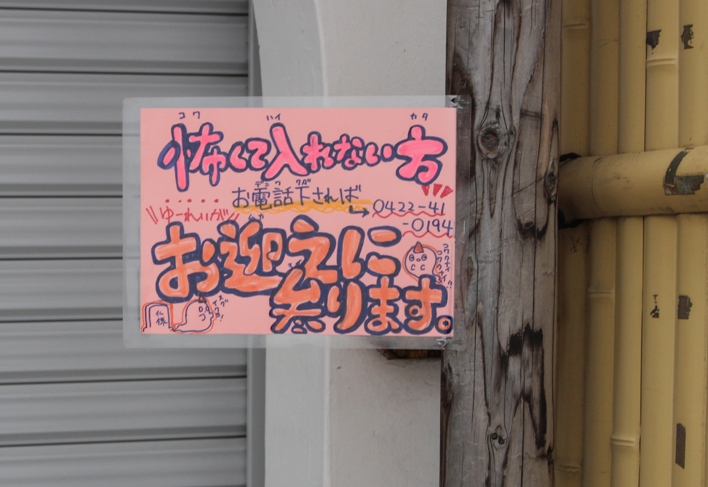 コワ ハイ カタ
怖くて入れない方
お電話下されば→0422-41
-0194
ゆーれいが
お迎えに
参ります。
仏像